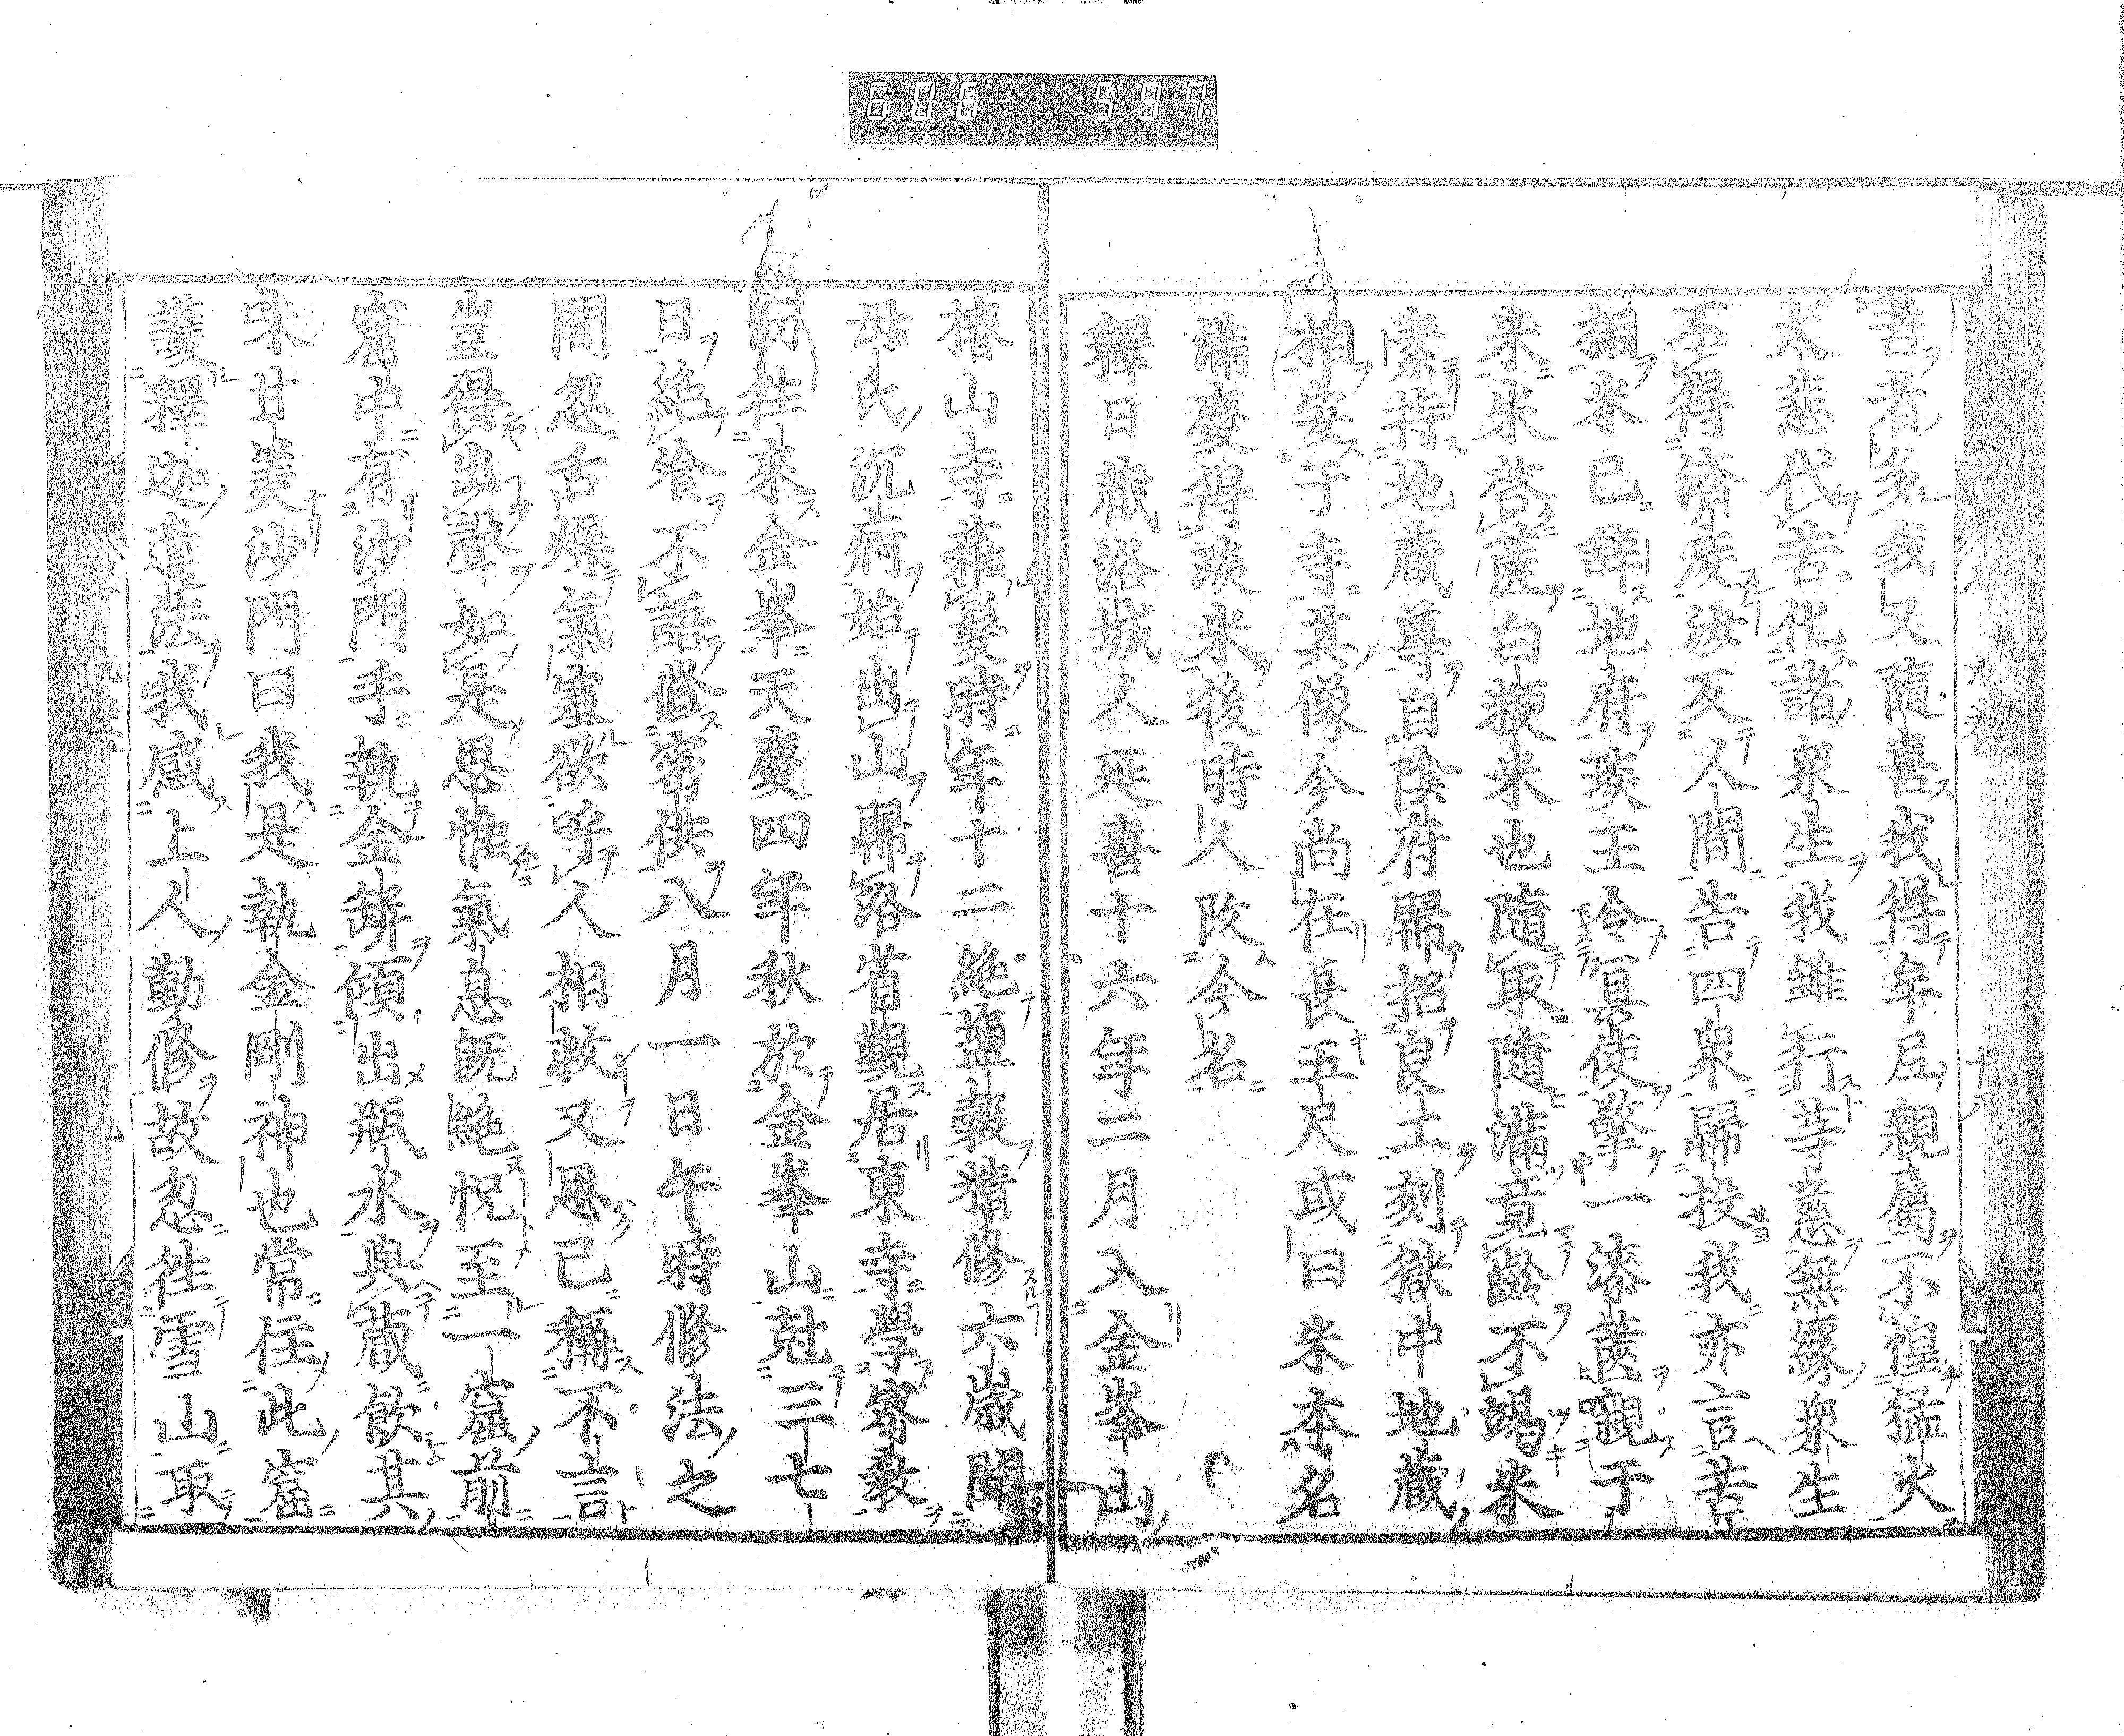 606 597
害者多我又隨喜我得牟尼親屬不憚猛火
大悲代苦化諸衆生我雖行等慈無緣衆生
不得濟度汝反人間告四衆歸投我亦言苦
報米已辭地府琰王令冥使擎一漆篋親于
来米啓篋白粳米也隨取隨滿竟齡不竭米
素持地藏尊自陰府歸招良工刻獄中地藏
相安于寺其像今尚在長五尺或曰米本名
滿慶得琰米後時人改今名
釋日藏洛城人延喜十六年二月入金峯山
椿山寺薙髮時年十二絶鹽穀精修六歲聞
母氏沉痾始出山歸洛省覲居東寺學密教
尚往來金峯天慶四年秋於金峯山尅三七
日絶飡不語修密供八月一日午時修法之
間忽舌燥氣塞欲呼人相救又思已稱不言
豈得出聲如是思惟氣息既絶怳至一窟前
窟中有沙門手執金鉼傾出瓶水與藏飲其
味甘美沙門曰我是執金剛神也常住此窟
護釋迦遺法我感上人勤修故忽往雪山取